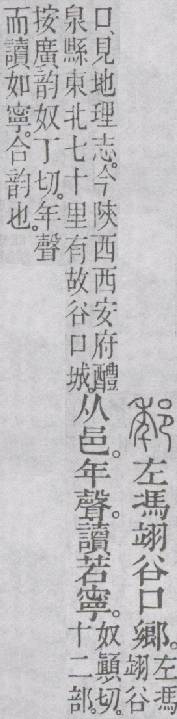 左馮翊谷口鄉。
左馮
翊谷
口、見地理志。今陝西西安府醴
泉縣東北七十里有故谷口城。
从邑。年聲。讀若寧。
奴顚切。
十二部。
按廣韵奴丁切。年聲
而讀如寧。合韵也。